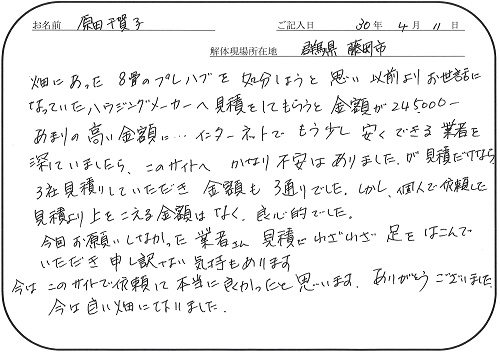 お名前 原田千賀子 ご記入日 30年 4月 11日
解体現場所在地 群馬県 藤岡市
畑にあった 8畳のプレハブを 処分しようと思い 以前よりお世話に
なっていたハウジングメーカーへ見積をしてもらうと 金額が245000-
あまりの高い金額に… インターネットで もう少し 安くできる業者を
探していましたら、このサイトへ かなり不安はありました。が見積だけなら
3社見積りしていただき 金額も 3通りでした。しかし、個人で依頼した
見積より上をこえる金額はなく、良心的でした。
今回お願いしなかった 業者さん 見積にわざわざ 足をはこんで
いただき 申し訳ない 気持もあります
今は このサイトで依頼して 本当に良かったと思います。ありがとうございました
今は 良い畑になりました。